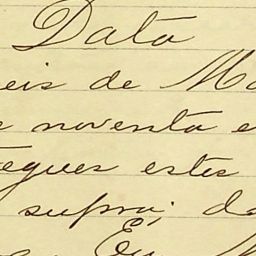 Data
eis de Ma
noventa e
tegues estes
supra; do
Eu